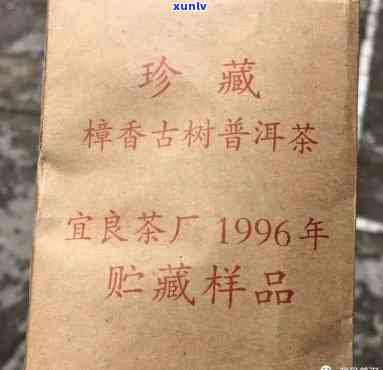 xunlv
珍藏
樟香古树普洱茶
宜良茶厂 1996 年
贮藏样品